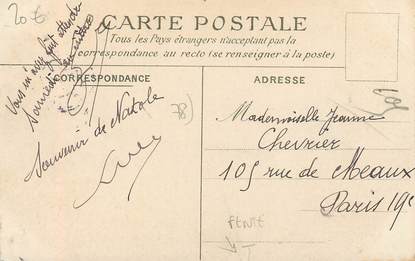 20€
CARTE POSTALE
Tous les Pays étrangers n'acceptant pas la
correspondance au recto (se renseigner à la poste)
CORRESPONDANCE
ADRESSE
Vous m'avez fait attendre
Samedi
Souvenir de Natole
78)
Mademoiselle Jeanne
Chevrier
105 rue de Meaux
Paris 19e